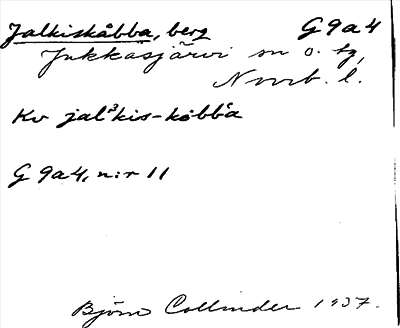 Jalkiskåbba, berg G9a4
Jukkasjärvi sn o. tg,
Norrb. l.
Kv jalˀkis-kåbba
G 9a4, n:r 11
Björn Collinder 1937.